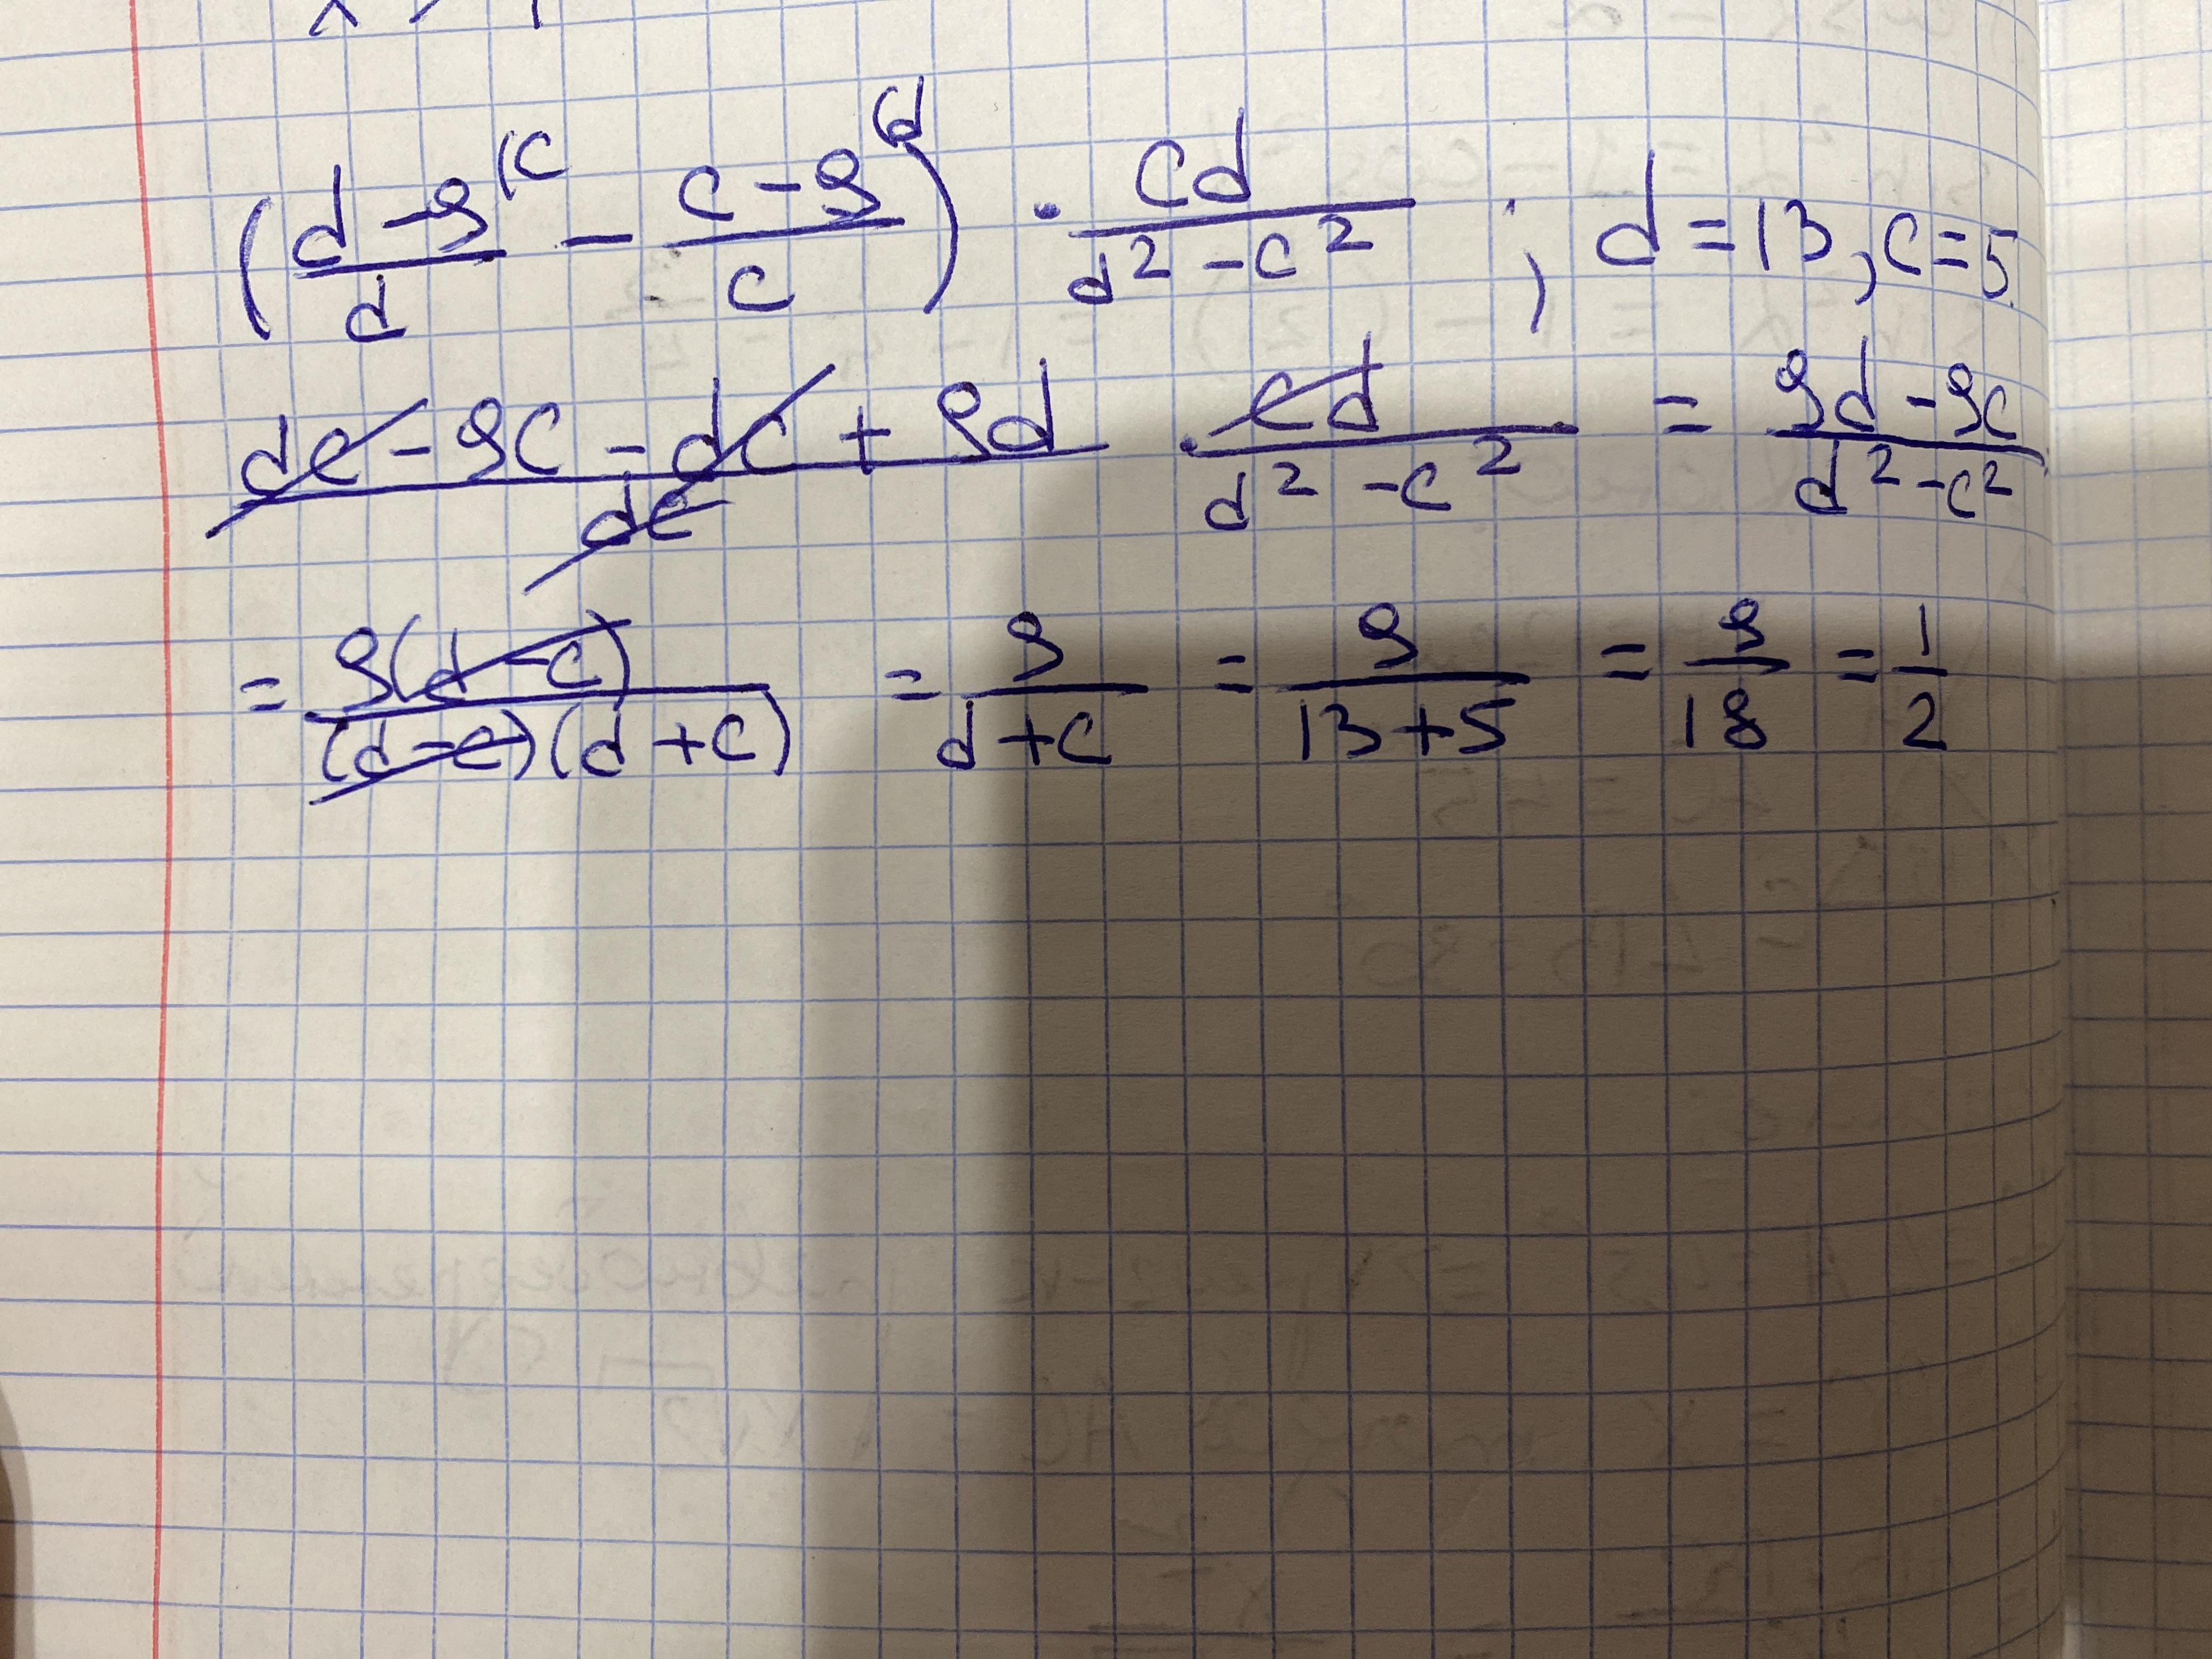 (\frac{d-9}{d}^{(c} - \frac{c-9}{c}^{(d}) · \frac{cd}{d²-c²} ; d=13, c=5
\frac{dc-9c-dc+9d}{dc} · \frac{cd}{d²-c²} = \frac{9d-9c}{d²-c²}
= \frac{9(d-c)}{(d-c)(d+c)} = \frac{9}{d+c} = \frac{9}{13+5} = \frac{9}{18} = \frac{1}{2}